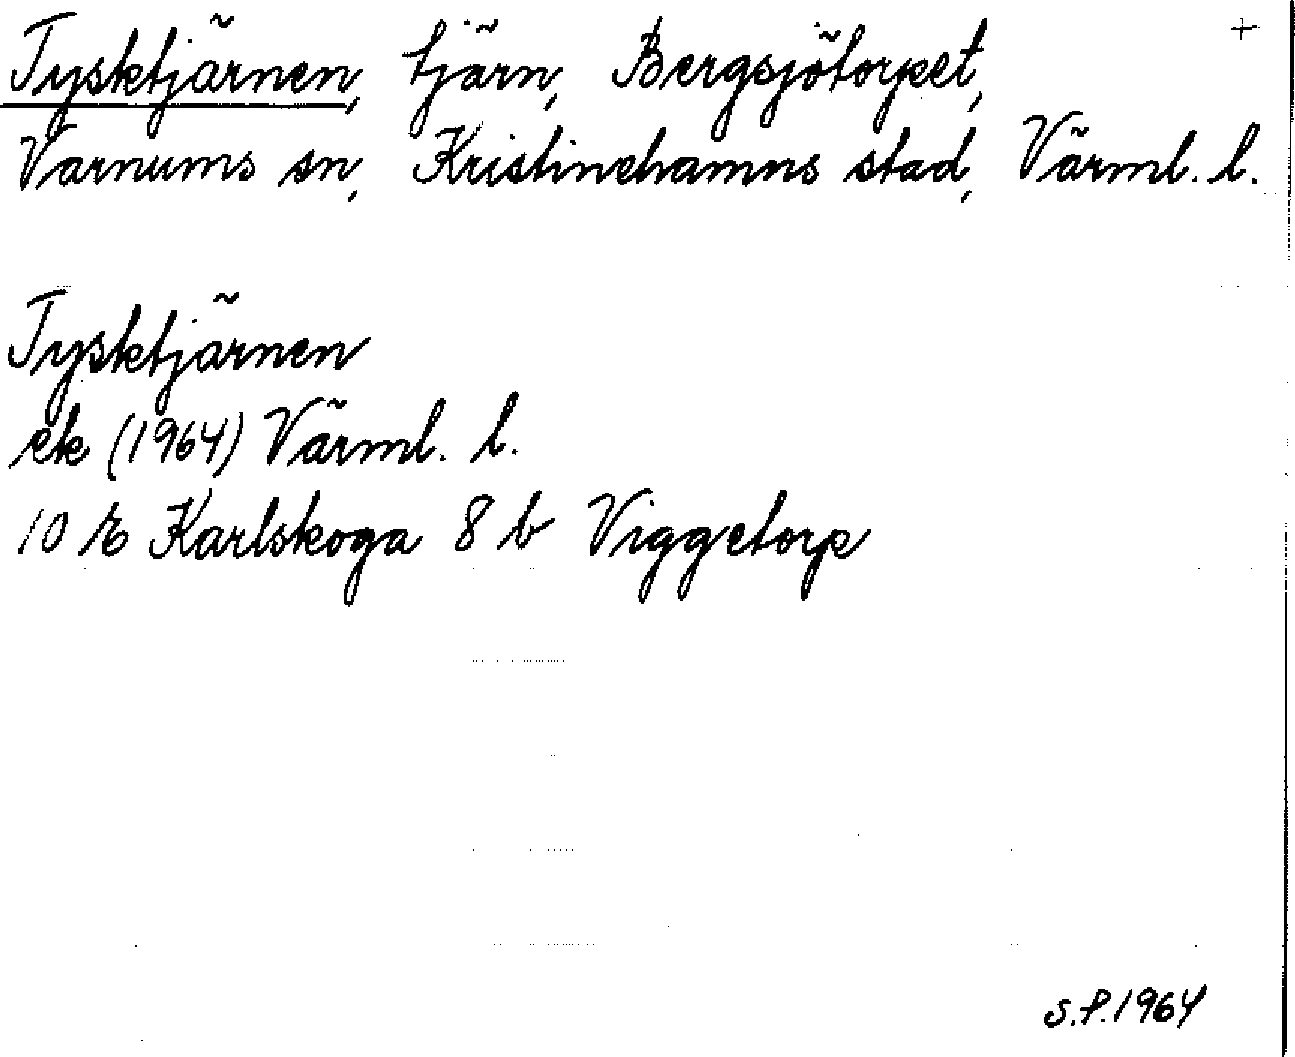 Tysktjärnen, tjärn, Bergsjötorpet, +
Varnums sn, Kristinehamns stad, Värml. l.
Tysktjärnen
ek (1964) Värml. l.
10 E Karlskoga 8 b Viggetorp
S.P. 1964